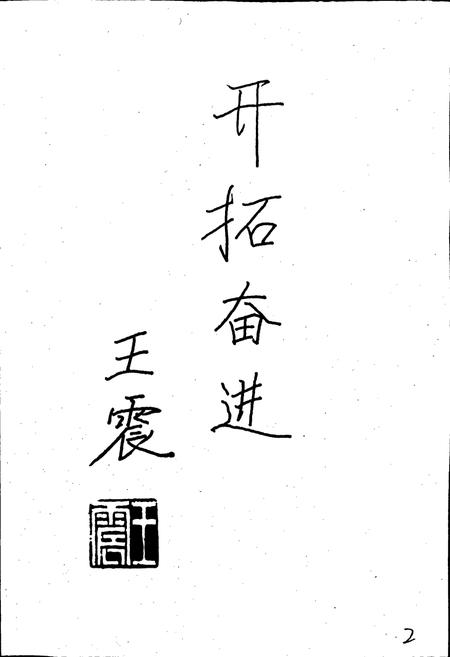 开拓奋进
王震
王震
2